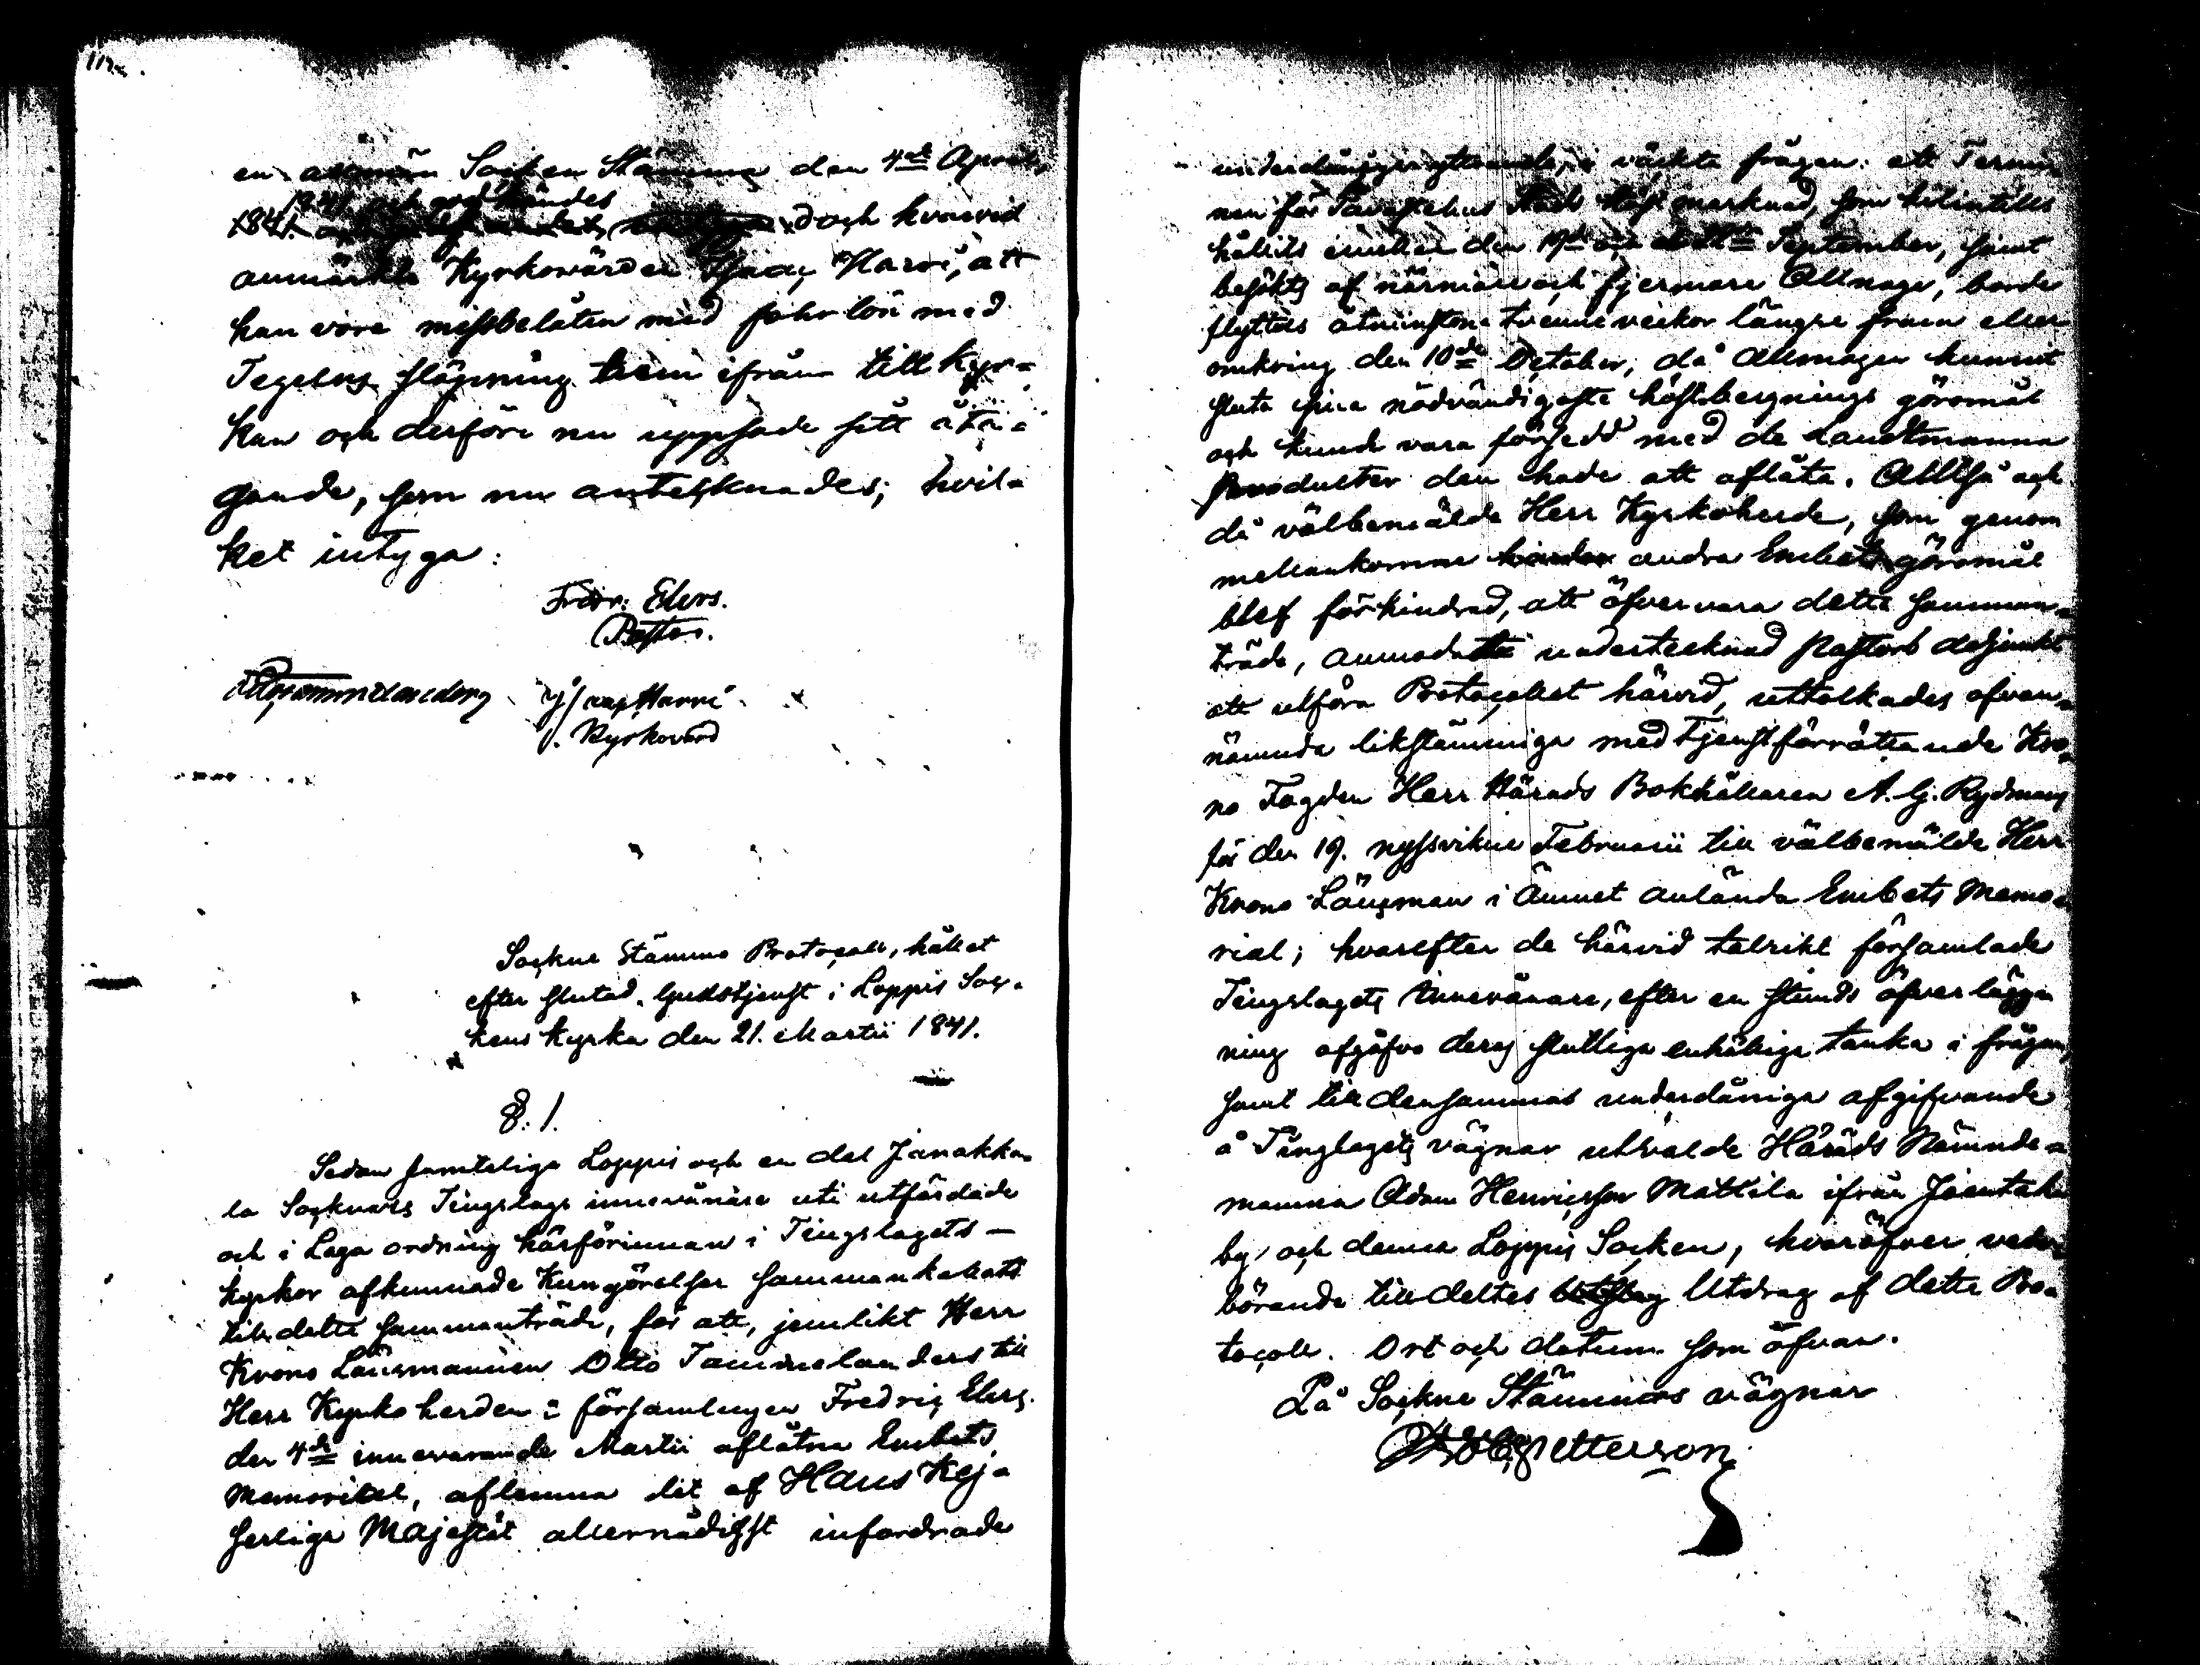 en allmän Socken Stämma den 4de April,
1841 och godkändes
1841. doch hvarvid
anmärkte Kyrkovärden Isaac Harvi, att
han vore missbelåten med fohrlön med
Tegelns släpning hem ifrån till Kyr-
kan och derföre nu uppsade sitt åta-
gande, som nu antecknades; hvil-
ket intyga:
Fredr: Elers.
Pastor.
Isaac Harvi
Kyrkovärd
Sockne Stämmo Protocoll, hållet
efter slutad Gudstjenst i Loppis Soc-
kens Kyrka den 21. Martii 1841.
§. 1.
Sedan samtelige Loppis och en del Janakka-
la Socknars Tingslags innevånare uti utfärdade
och i Laga ordning härförinnan i Tingslagets
kyrkor afkunnade Kungörelser sammankallats
till detta sammanträde, för att, jemlikt Herr
Krono Länsmannen Otto Tammelanders till
Herr Kyrkoherden i församlingen Fredric Elers
den 4de innevarande Martii aflåtna Embets
Memorial, aflemna det af Hans Kej-
serliga Majestät allernådigst infordrade
underdåniga yttrande, i väckta frågan: att Termi-
nen för Tavastehus Stads Höst marknad, som hitintills
hållits emellan den 19de och September, samt
besökts af närmare och fjermare Allmoge, borde
flyttas åtminstone tvenne veckor längre fram eller
omkring den 10de October, då Allmogen hunnit
sluta sina nödvändigaste höstbergnings göromål
och kunde vara försedd med de Landtmanna
Producter den hade att aflåta. Alltså och
då välbemälde Herr Kyrkoherde, som genom
mellankomne hinder andra Embets göromål
blef förhindrad, att öfvervara detta samman-
träde, anmodatte undertecknad Pastors adjunkt
att utföra Protocollet härvid, uttolkades ofvan-
nämnde likstämmiga med Tjenstförrättande Kro-
no Fogden Herr Härads Bokhållaren A. G. Rydmans
för den 19. nyssvikne Februarii till välbemälde Herr
Krono Länsman i Ämnet anlända Embets Memo-
rial; hvarefter de härvid talrikt församlade
Tingslagets Innevånare, efter en stunds öfverlägg-
ning afgåfvo deras slutliga enhälliga tanke i frågan,
samt till densammas underdåniga afgifvande
å Tinglagets vägnar utvalde Härads Nämnde-
mannen Adam Henricsson Mattila ifrån Jäentaka
by och denna Loppis Socken, hvaröfver veder-
börande tilldeltes Utdrag af detta Pro-
tocoll. Ort och datum som ofvan.
På Sockne Stämmans vägnar
Petterson